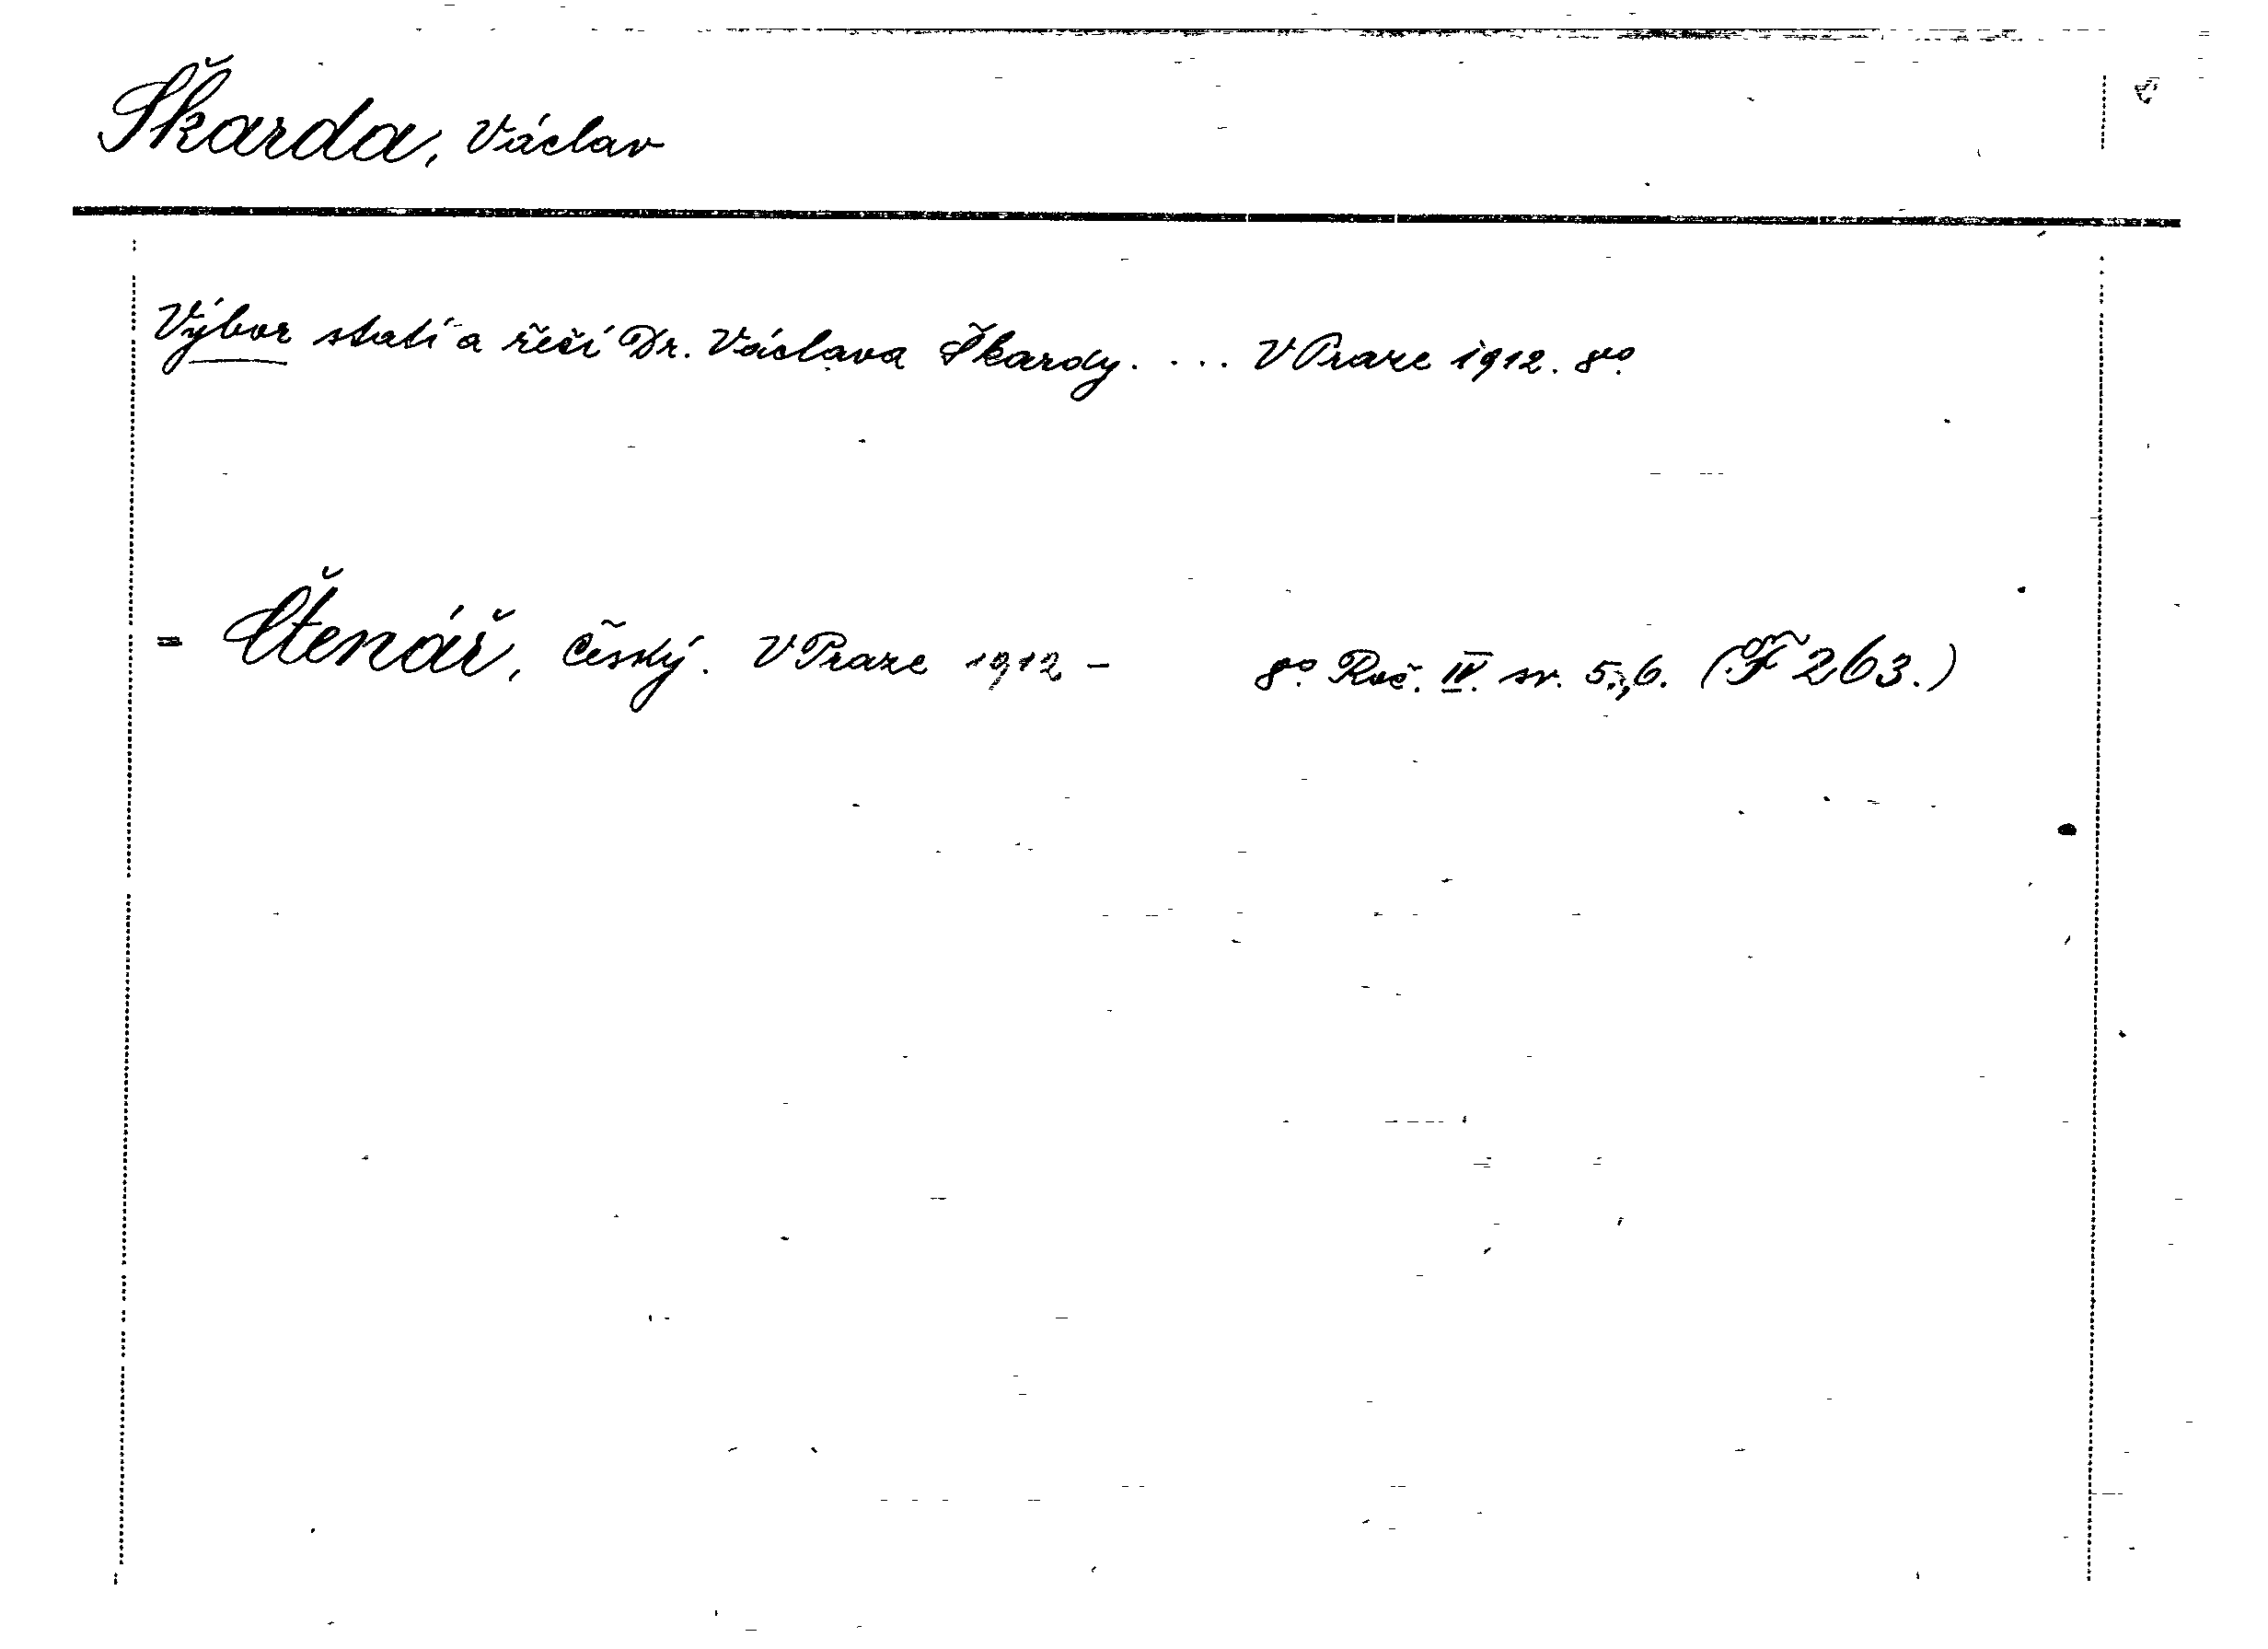 Škarda, Václav
Výbor statí a řečí Dr. Václava Škardy. ... V Praze 1912. 8º.
= Čtenář, Český. V Praze 1912 - 8º. Roč. IV. sv. 5.,6. (F 263.)